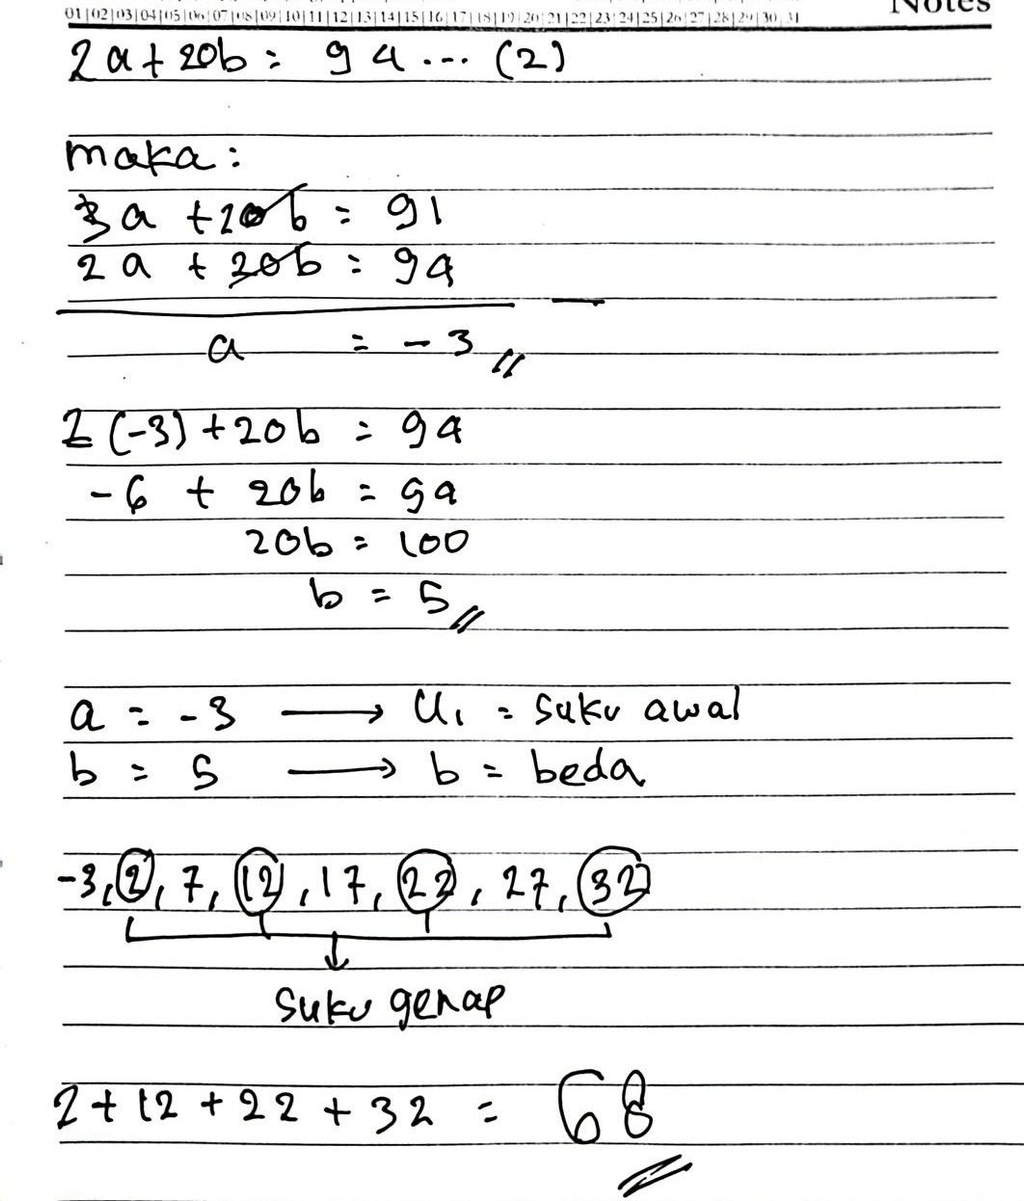 01|02|03|04|05|06|07|08|09|10|11|12|13|14|15|16|17|18|19|20|21|22|23|24|25|26|27|28|29|30|31
Notes
2a + 20b = 94 ... (2)
maka :
3a + 20b = 91
2a + 20b = 94
a = -3
2(-3) + 20b = 94
-6 + 20b = 94
20b = 100
b = 5
a = -3 → U1 = suku awal
b = 5 → b = beda
-3, 2, 7, 12, 17, 22, 27, 32
suku genap
2 + 12 + 22 + 32 = 68